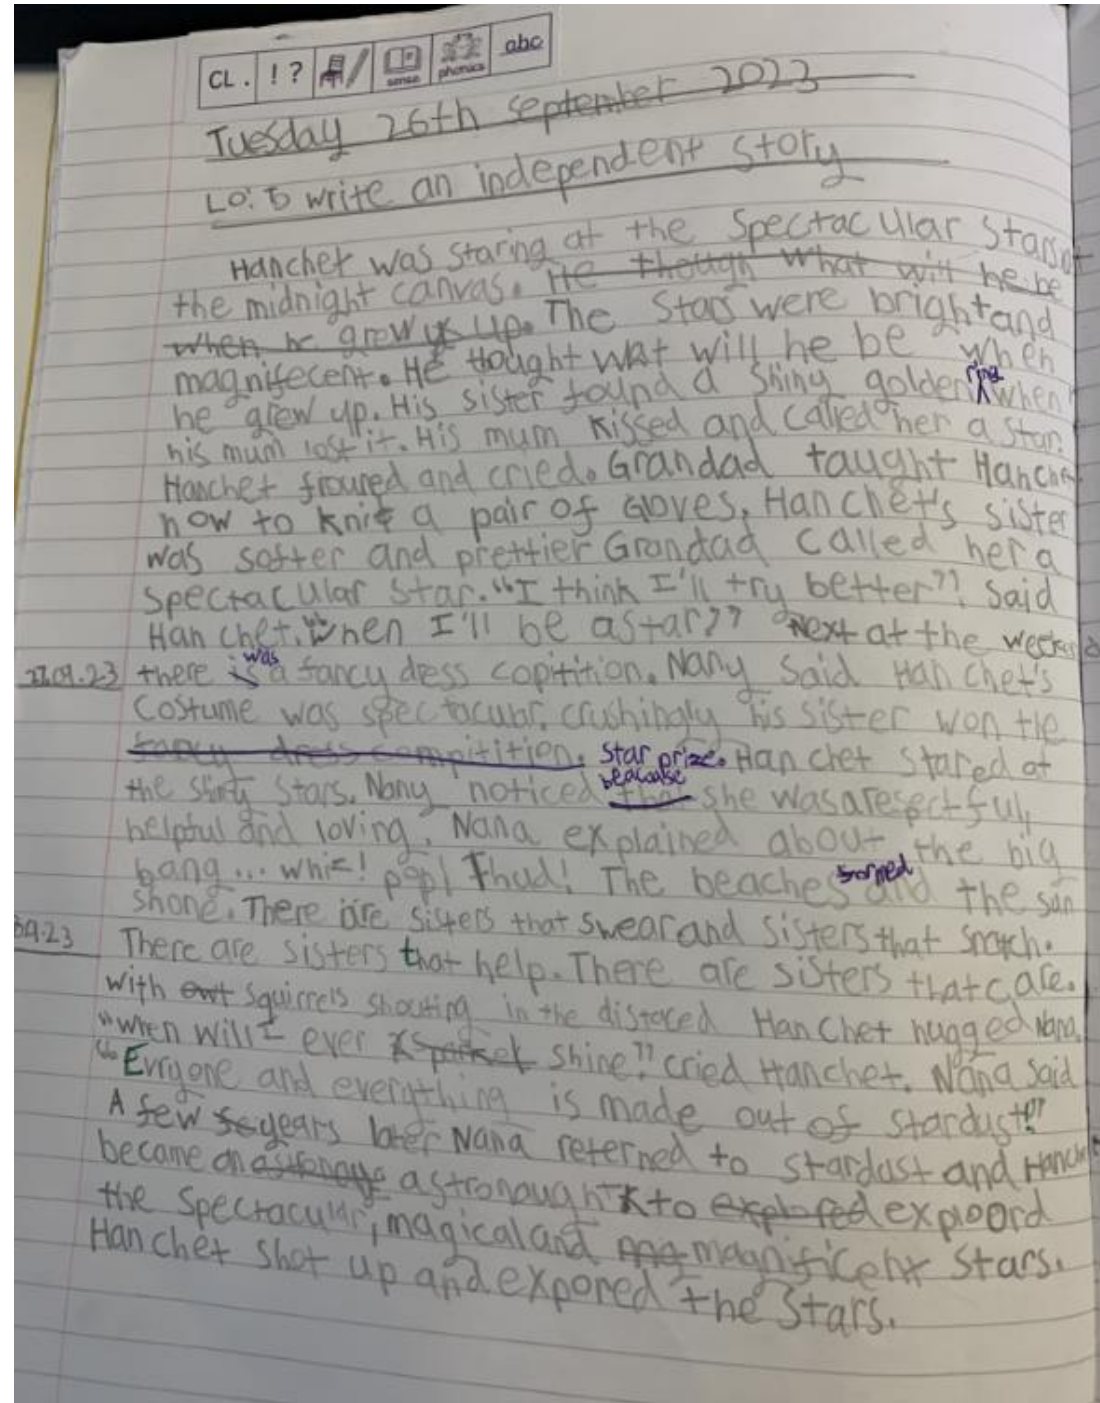 CL . ! ? sense phonics abc
Tuesday 26th september 2023
LO: To write an independent story
Hanchet was staring at the Spectacular Stars of
the midnight canvas. He though what will he be
when he grew up. The Stars were bright and
magnifecent. He thought wat will he be when
he grew up. His sister found a shiny golden ring when
his mum lost it. His mum kissed and called her a star.
Hanchet froured and cried. Grandad taught Hanchet
how to knit a pair of Gloves. Hanchet's sister
was softer and prettier Grandad called her a
spectacular star. "I think I'll try better" said
Hanchet. When I'll be a star?" Next at the
27.09.23 there is was a fancy dess copitition. Nany said Hanchet's
Costume was spectacular. crushingly his sister won the
fancy dress compitition. star prize. Hanchet stared at
the shiny stars. Nany noticed beacause she was a resectful,
helpful and loving. Nana explained about the big
bang... whiz! pop! Thud! The beaches formed and the sun
shone. There are sisters that swear and sisters that snatch.
There are sisters that help. There are sisters that care.
With out squirrels shouting in the distaced Hanchet hugged Nana.
"when will I ever shine?" cried Hanchet. Nana said
"Evryone and everything is made out of stardust!"
A few years later Nana reterned to stardust and Hanchet
become an astronought to explored exploord
the spectacular, magical and magnificent stars.
Hanchet shot up and expored the Stars.